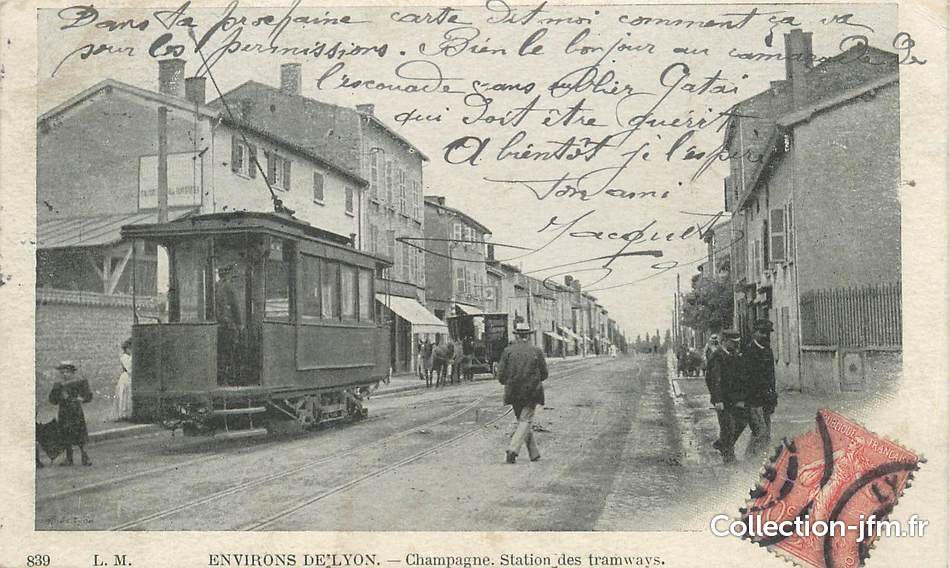 Dans ta prochaine carte dit moi comment ça va
pour les permissions. Bien le bonjour au camarade de
l'escouade sans oublier Gatai
qui doit être guerit
A bientôt j'l'espère
Ton ami
Jacquet
REPUBLIQUE FRANÇAISE
10
LY
Collection-jfm.fr
839 L. M. ENVIRONS DE LYON. — Champagne. Station des tramways.